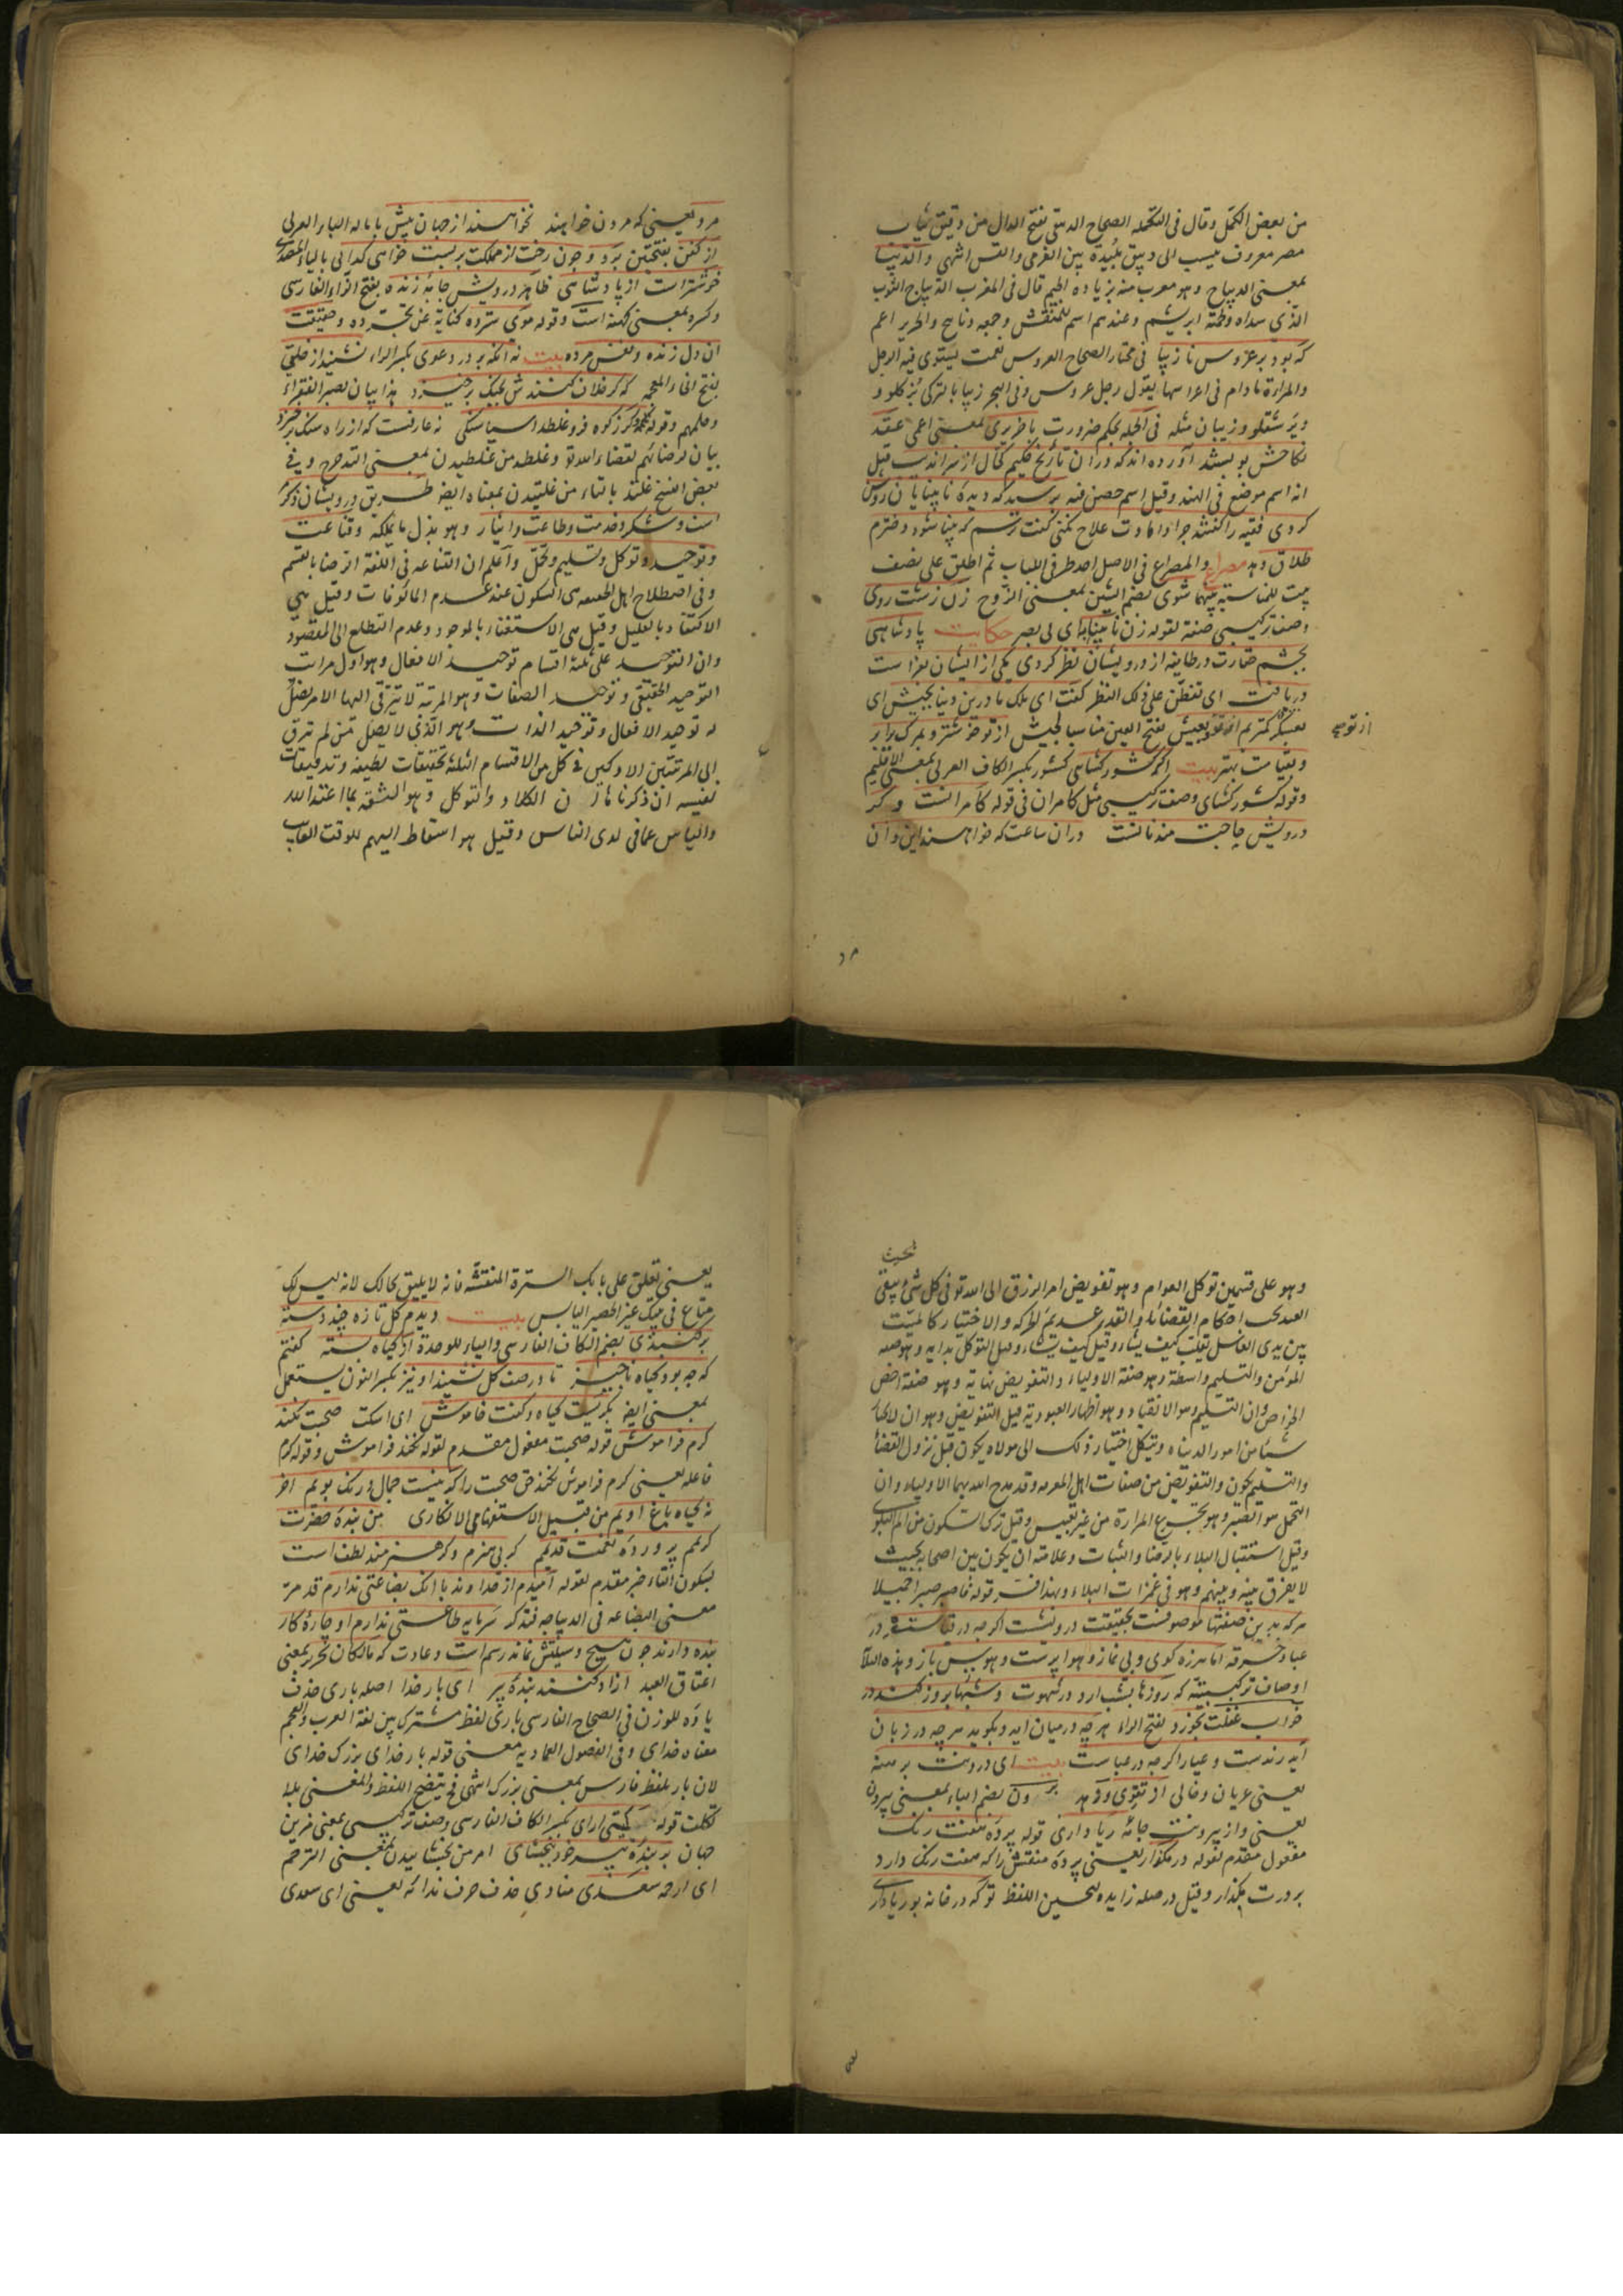 من بعض الكمّل وقال فى التكملة الصحاح الدبيقى بفتح الدال من دقيق ثياب
مصر معروف ينسب الى دبيق بليدة بين الفرمى والتنس انتهى والديبا
بمعنى الديباج وهو معرب منه بزياده الجيم قال فى المغرب الديباج الثوب
الذى سداه ولحمته ابريشم وعندهم اسم للمنقش وجمعه دبابيج والحرير اعم
كه بود بر عروس نازيبا فى مختار الصحاح العروس نعت يستوى فيه الرجل
والمراة مادام فى اعراسهما يقول رجل عروس وفى البحر زيبا بالتركى
وزيبان مثله فى الجمله بحكم ضرورت با ضريرى بمعنى اعمى عقد
نكاحش ببستند آورده اند كه در ان تاريخ حكيم كحال از سرانديب قيل
انه اسم موضع فى الهند وقيل اسم حصن فيه برسيد كه ديده نابينايان روشن
كردى فقيه را كفتند چرا داماد ت علاج نكنى كفت ترسم كه بينا شود ودخترم
طلاق دهد مصراع والمصراع فى الاصل احد طرفى الباب ثم اطلق على نصف
بيت للمناسبة بينهما شوى بضم الشين بمعنى الزوج زن زشت روى
وصف تركيبى صفة لقوله زن نابينا به اى بى بصر حكايت پادشاهى
بچشم حقارت در طايفه از درويشان نظر كردى يكى از ايشان بفراست
دريافت اى تفطن على ذلك النظر كفت اى ملك ما درين دنيا بجيش اى
بعسكر كمتريم از تو وبعيش بفتح العين مناسبا لجيش از تو خوشتر وبمرك برابر
از تو صح
وبقيامت بهتر بيت اكر كشور كشاى كشور بكسر الكاف العربى بمعنى الاقليم
وقوله كشور كشاى وصف تركيبى مثل كامران فى قوله كامرانست وكر
درويش حاجت مند نانست دران ساعت كه خواهند اين وان
مرد
مرد يعنى كه مردن خواهند نخواهند از جهان بيش با ماله الباء العربى
از كفن بفتحتين برد وچون رخت از مملكت بربست خواهى كدائى بالياء المصدرى
خوشتر است از پادشاهى ظاهر درويش جامه ژنده بفتح الزاء الفارسى
وكسره بمعنى كهنه است وقوله موى سترده كناية عن تجرده وحقيقت
ان دل زنده ونفس مرده بيت نه انكه بر در دعوى بكسر الراء نشيند از خلقى
بفتح الخاء المعجمه كه كر خلاف كنندش بجنك برخيزد هذا بيان لصبر الفقراء
وحلمهم وقوله كر زكوه فرو غلطد اسياسنكى نه عارفست كه از راه سنك برخيزد
بيان لرضائهم لقضاء الله تع وغلطد من غلطيدن بمعنى التدحرج وفى
بعض النسخ غلتد بالتاء من غلتيدن بمعناه ايضا طريق درويشان ذكر
است وشكر وخدمت وطاعت وايثار وهو بذل ما يملكه وقناعت
وتوحيد وتوكل وتسليم وتحمل واعلم ان القناعه فى اللغة الرضا بالقسم
وفى اصطلاح اهل الحقيقه هى السكون عند عدم المالوفات وقيل هى
الاكتفاء بالقليل وقيل هى الاستغناء بالموجود وعدم التطلع الى المفقود
وان التوحيد على ثلثة اقسام توحيد الافعال وهو اول مراتب
التوحيد الحقيقى وتوحيد الصفات وهو المرتبة لا يترقى اليها الا من حصل
له توحيد الافعال وتوحيد الذات وهو الذى لا يصل من لم ترق
الى المرتبتين الاوليين فى كل من الاقسام الثلثة تحقيقات لطيفه وتدقيقات
نفيسه ان ذكرنا الكلام والتوكل وهو الثقة بما عند الله
والياس عما فى لدى الناس وقيل هو اسقاط اليهم للوقت الغايب
وهو على قسمين توكل العوام وهو تفويض امر الرزق الى الله تع فى كل شئ يبقى
بحيث
العبد تحت احكام القضاء والقدر عديم الحركه والاختيار كالميت
بين يدى الغاسل يقلب كيف يشاء وقيل كيف يشاء وقيل التوكل بدايه وهو صفه
المؤمن والتسليم واسطة وهو صفة الاولياء والتفويض نهاية وهو صفة اخص
الخواص وان التسليم هو الانقياد وهو اظهار العبودية قيل التفويض وهو ان لا يختار
شيئا من امور الدنياه ويتكل اختيار ذلك الى مولاه يكون قبل نزول القضاء
والتسليم يكون والتفويض من صفات اهل المعرفه وقد مدح الله بهما الاولياء وان
التحمل هو الصبر وهو تجرع المرارة من غير تعبيس وقيل ترك الشكوى من الم البلوى
وقيل استقبال البلاء بالرضا والثبات وعلامته ان يكون بين اصحابه بحيث
لا يفرق بينه وبينهم وهو فى غمرات البلاء وبهذا فسر قوله فاصبر صبرا جميلا
هر كه بدين صفتها موصوفست بحقيقت درويشست اكرچه در قباست
عبا وخرقه اما هرزه كوى وبى نماز وهوا پرست وهوس باز وهذه الثلاثة
اوصاف تركيبية كه روزها بشب ارد در شهوت وشبها بروز كند در
خواب غفلت بخورد بفتح الراء هرچه در ميان ايد وبكويد هرچه در زبان
ايد رندست وعيار اكرچه در عباست بيت اى درونت برهنه
يعنى عريان وخالى از تقوى وزهد برون بضم الباء بمعنى بيرون
يعنى واز بيرونت جامه ريا دارى قوله پرده هفت رنك
مفعول مقدم لقوله در مكذار يعنى پرده منقش را كه هفت رنك دارد
بر درت مكذار وقيل در صله زايده لتحسين اللفظ تو كه در خانه بوريا دارى
يعنى
يعنى تعلق على بابك السترة المنقشه فانه لا يليق بحالك لانه ليس لك
متاع فى بيتك غير الحصير اليابس بيت ديدم كل تازه چند دسته
بر كنبدى بضم الكاف الفارسى والياء للوحدة از كياه بسته كفتم
كه چه بود كياه ناچيز تا در صف كل نشيند او نيز بكسر النون يستعمل
بمعنى ايضا بكريست كياه وكفت خاموش اى اسكت صحبت نكند
كرم فراموش قوله صحبت مفعول مقدم لقوله نكند فراموش وقوله كرم
فاعله يعنى كرم فراموش نكند حق صحبت را كر نيست جمال ورنك وبويم اخر
نه كياه باغ اويم من قبيل الاستفهامى الانكارى من بنده حضرت
كريمم پرورده نعمت قديمم كر بى هنرم وكر هنرمند لطف است
بسكون التاء خبر مقدم لقوله اميدم از خداوند با انك بضاعتى ندارم قد مر
معنى البضاعه فى الديباجه فتذكر سرمايه طاعتى ندارم او چاره كار
بنده داند چون هيچ وسيلتش نماند رسم است وعادت كه مالكان تحرير بمعنى
اعتاق العبد ازاد كنند بنده پير اى بار خدا اصله بارى حذف
ياؤه للوزن فى الصحاح الفارسى بارى لفظ مشترك بين لغة العرب والعجم
معناه خداى وفى الفصول العماديه معنى قوله بار خداى بزرك خداى
لان بار بلفظ فارس بمعنى بزرك انتهى فح يتضح اللفظ والمعنى بلا
تكلف قوله كيتى اراى بكسر الكاف الفارسى وصف تركيبى بمعنى مزين
جهان بر بنده پير خود ببخشاى امر من بخشاييدن بمعنى الترحم
اى ارحم سعدى منادى حذف حرف ندائه يعنى اى سعدى